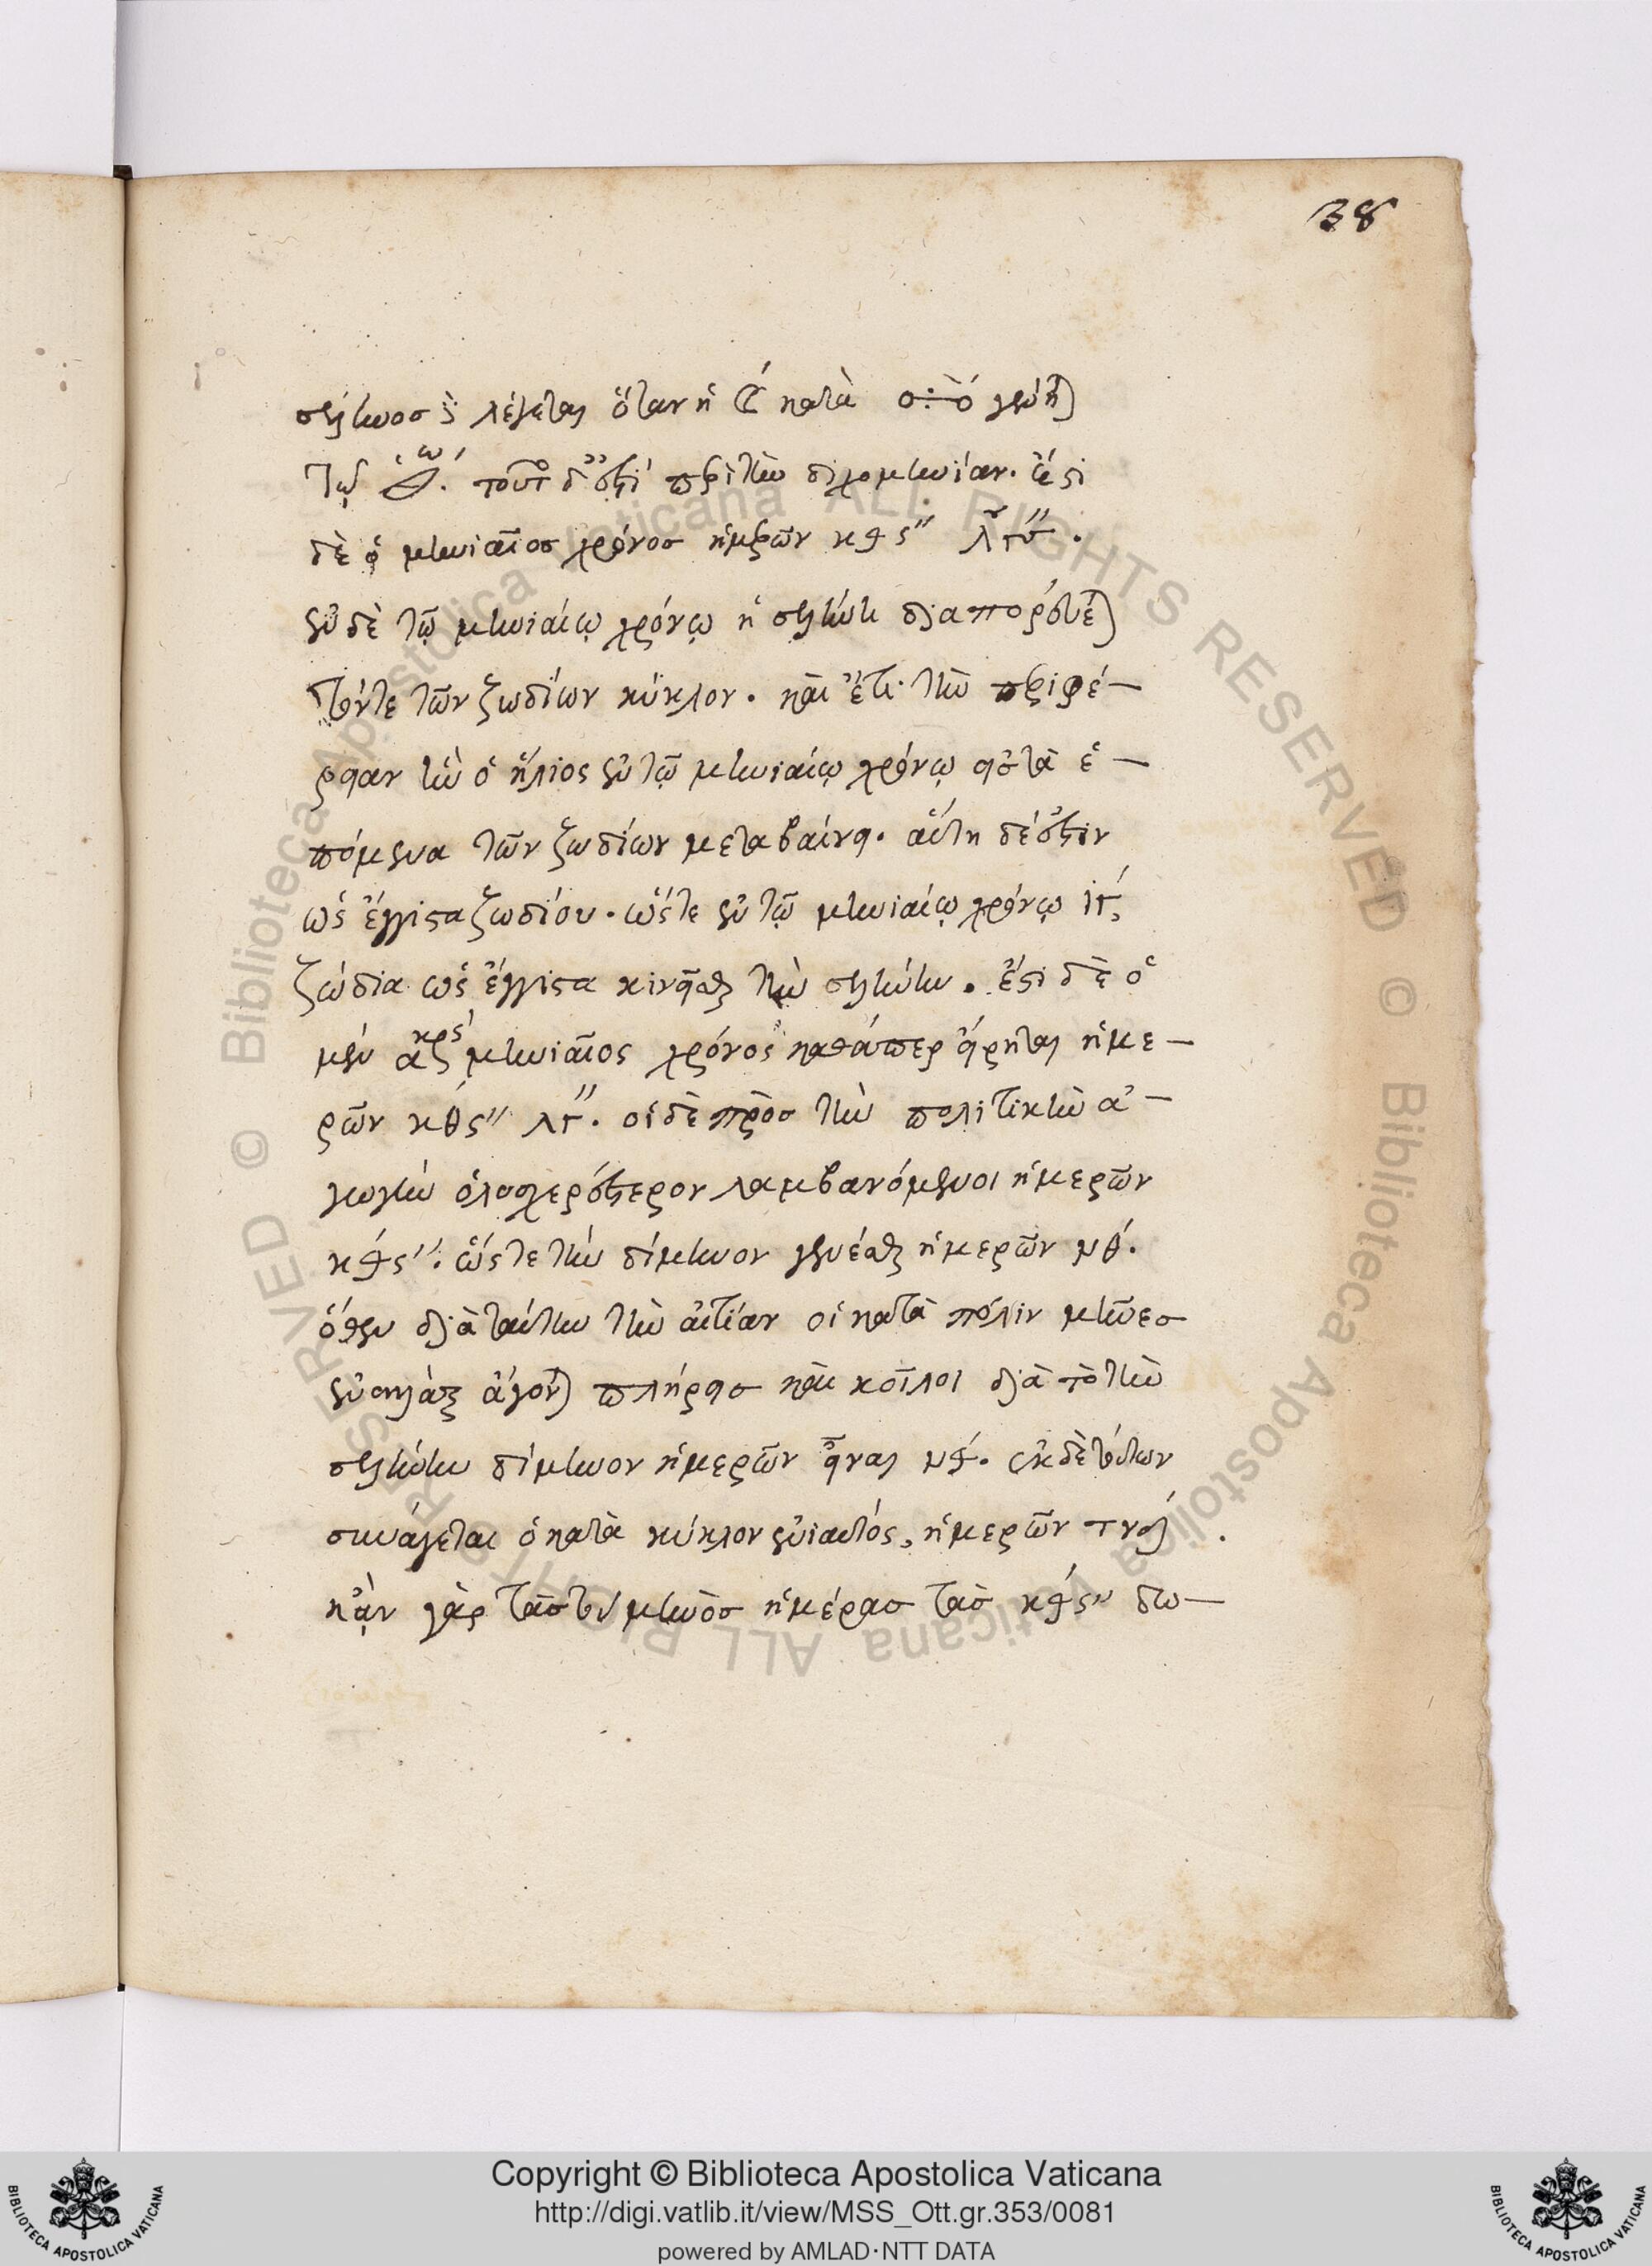 38
σέληνος δὲ λέγεται ὅταν ἡ ☾ κατὰ διάμετρον γένηται
τῷ ἡλίῳ. τοῦτο δ' ἐστὶ περὶ τὴν διχομηνίαν. ἔστι
δὲ ὁ μηνιαῖος χρόνος ἡμερῶν κθ ς'' λγ''.
ἐν δὲ τῷ μηνιαίῳ χρόνῳ ἡ σελήνη διαπορεύεται
τόν τε τῶν ζωδίων κύκλον. καὶ ἔτι τὴν περιφέ-
ρειαν ἣν ὁ ἥλιος ἐν τῷ μηνιαίῳ χρόνῳ εἰς τὰ ἑ-
πόμενα τῶν ζωδίων μεταβαίνει. αὕτη δέ ἐστιν
ὡς ἔγγιστα ζωδίου. ὥστε ἐν τῷ μηνιαίῳ χρόνῳ ιγ,
ζώδια ὡς ἔγγιστα κινεῖσθαι τὴν σελήνην. ἔστι δὲ ὁ
μὲν ἀκριβὴς μηνιαῖος χρόνος καθάπερ εἴρηται ἡμε-
ρῶν κθ ς'' λγ''. οἱ δὲ πρὸς τὴν πολιτικὴν ἀ-
γωγὴν ὁλοσχερέστερον λαμβανόμενοι ἡμερῶν
κθ ς''. ὥστε τὴν δίμηνον γενέσθαι ἡμερῶν νθ.
ὅθεν διὰ ταύτην τὴν αἰτίαν οἱ κατὰ πόλιν μῆνες
ἐναλλὰξ ἄγονται πλήρεις καὶ κοῖλοι διὰ τὸ τὴν
σελήνην δίμηνον ἡμερῶν εἶναι νθ. ἐκ δὲ τούτων
συνάγεται ὁ κατὰ κύκλον ἐνιαυτός, ἡμερῶν τνδ.
κἂν γὰρ τὰς τοῦ μηνὸς ἡμέρας τὰς κθ ς'' δω-
© Biblioteca Apostolica Vaticana ALL RIGHTS RESERVED © Biblioteca Apostolica Vaticana ALL RIGHTS RESERVED
BIBLIOTECA APOSTOLICA VATICANA
Copyright © Biblioteca Apostolica Vaticana
http://digi.vatlib.it/view/MSS_Ott.gr.353/0081
powered by AMLAD·NTT DATA
BIBLIOTECA APOSTOLICA VATICANA